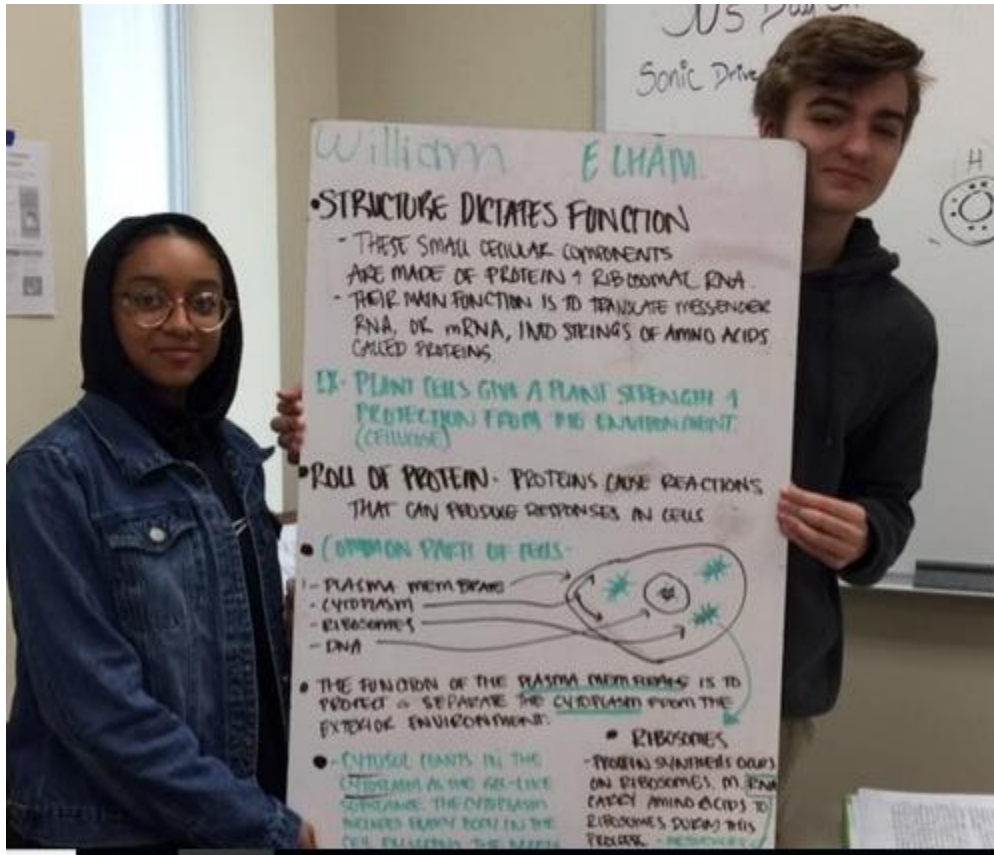 Sonic Drive
H
William ELHAM
• STRUCTURE DICTATES FUNCTION
- THESE SMALL CELLULAR COMPONENTS
ARE MADE OF PROTEIN & RIBOSOMAL RNA.
- THEIR MAIN FUNCTION IS TO TRANSLATE MESSENGER
RNA, OR mRNA, INTO STRINGS OF AMINO ACIDS
CALLED PROTEINS.
EX- PLANT CELLS GIVE A PLANT STRENGTH &
PROTECTION FROM THE ENVIRONMENT.
(CELLULOSE)
• ROLL OF PROTEIN - PROTEINS CAUSE REACTIONS
THAT CAN PRODUCE RESPONSES IN CELLS
• COMMON PARTS OF CELLS-
- PLASMA MEMBRANE
- CYTOPLASM
- RIBOSOMES
- DNA
• THE FUNCTION OF THE PLASMA MEMBRANE IS TO
PROTECT & SEPARATE THE CYTOPLASM FROM THE
EXTERIOR ENVIRONMENT.
• - CYTOSOL IN THE
CYTOPLASM AS THE GEL-LIKE
SUBSTANCE THE CYTOPLASM
INCLUDES EVERY BODY IN THE
CELL
• RIBOSOMES
- PROTEIN SYNTHESIS OCCURS
ON RIBOSOMES. M. RNA
CARRY AMINO ACIDS TO
RIBOSOMES DURING THIS
PROCESS -